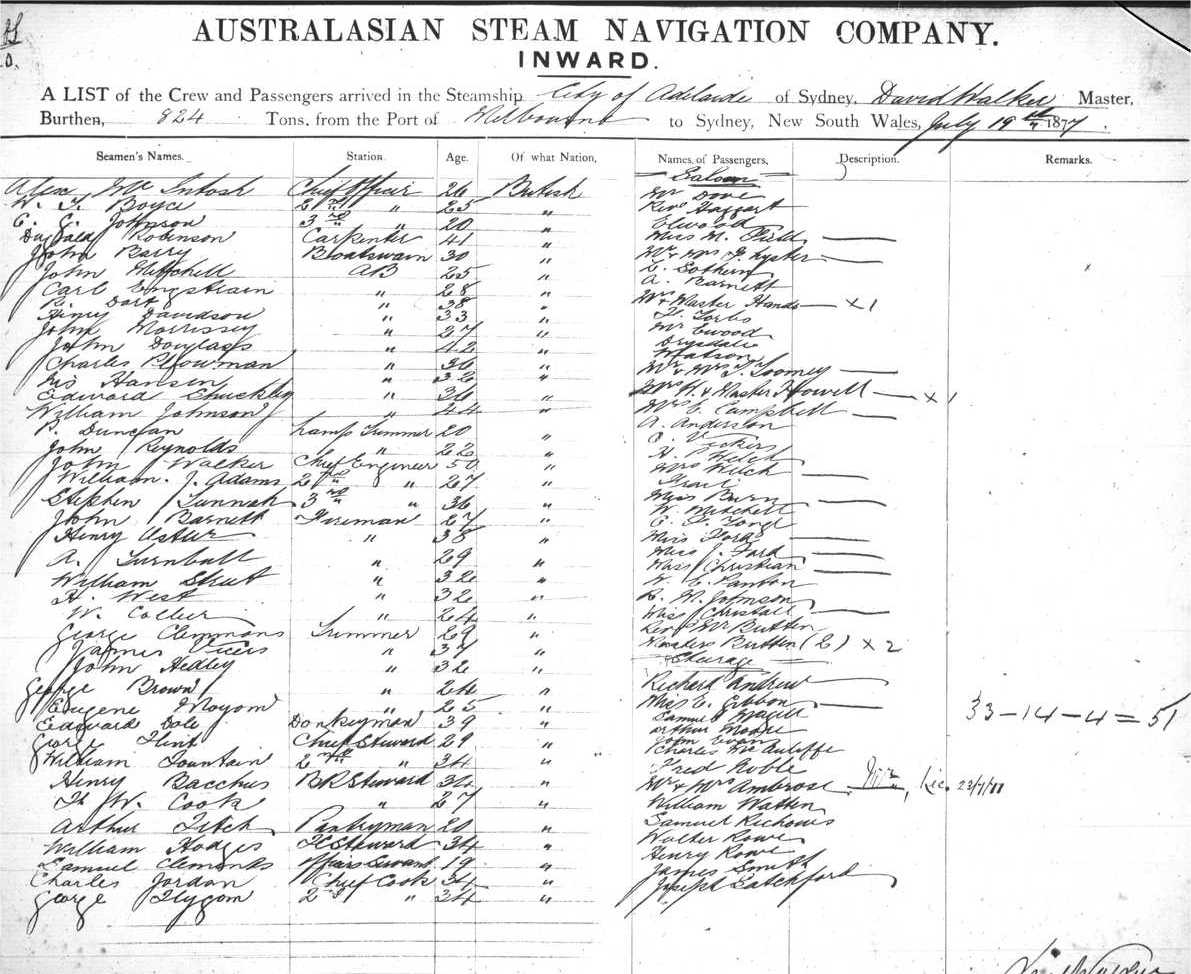 AUSTRALASIAN STEAM NAVIGATION COMPANY.
INWARD.
A LIST of the Crew and Passengers arrived in the Steamship City of Adelaide of Sydney, David Walker Master,
Burthen, 824 Tons. from the Port of Melbourne to Sydney, New South Wales, July 19th 1877.
Seamen's Names. Station. Age. Of what Nation,
Alex Mc Intosh Chief Officer 26 British
W. T. Boyce 2nd " 25 "
E. G. Johnson 3rd " 20 "
Dugald Robinson Carpenter 41 "
John Barry Boatswain 30 "
John Mitchell AB 25 "
Carl Engstrain " 28 "
Dort " 38 "
Henry Davidson " 33 "
John Morrissey " 27 "
John Douglass " 42 "
Charles Plowman " 36 "
Hansen " 32 "
Edward Chuckley " 36 "
William Johnson " 44 "
P. Duncan Lamp Trimmer 20 "
John Reynolds " " 22 "
John Walker Chief Engineer 50 "
William. J. Adams 2nd " 27 "
Stephen Tunnah 3rd " 36 "
John Barnett Fireman 27 "
Henry " 38 "
A. Turnbull " 29 "
William " 32 "
H. West " 32 "
W. Collier " 24 "
George Clemmons Trimmer 29 "
James " 37 "
John Hedley " 32 "
George Brown " "
Eugene " 25 "
Edward Dale Donkeyman 39 "
George Flint Chief Steward 29 "
William Fountain 2nd " 34 "
Henry Bacchus BR Steward 34 "
W. Cook " 27 "
Arthur Fitch Pantryman 20 "
William Hodges Steward 34 "
Samuel Clements Servant 19 "
Charles Jordan Chief Cook 34 "
George 2nd " 34 "
Names of Passengers, Description. Remarks.
Saloon
Mr Dove
Revd Haggart
Elwood
Miss M. Field
Mr & Mrs F. Lyster
E. Sothern
A. Barnett
Mrs & Master Hands x 1
Mr Ewood
Drysdale
Watson
Mr & Mrs T. Loomey
Mrs H. & Master Howell x 1
Mrs E. Campbell
A. Anderson
C. Vickers
H. P. Welch
Mrs Welch
Miss Burn
W. Mitchell
Miss Ford
Miss J. Ford
Miss Christian
W. E. Panton
R. M. Johnson
Miss Christall
Revd Mr Button
Masters Button (2) x 2
Steerage
Richard Andrew
Miss E. Gibbon
Samuel Magill
Arthur Moore
John Evans
Charles Mc Auliffe
Fred Noble
Mr & Mrs Ambrose 23/7/77
William Watten
Samuel
Walter Rowe
Henry Rowe
James Smith
Joseph Catchford
33 - 14 - 4 = 51